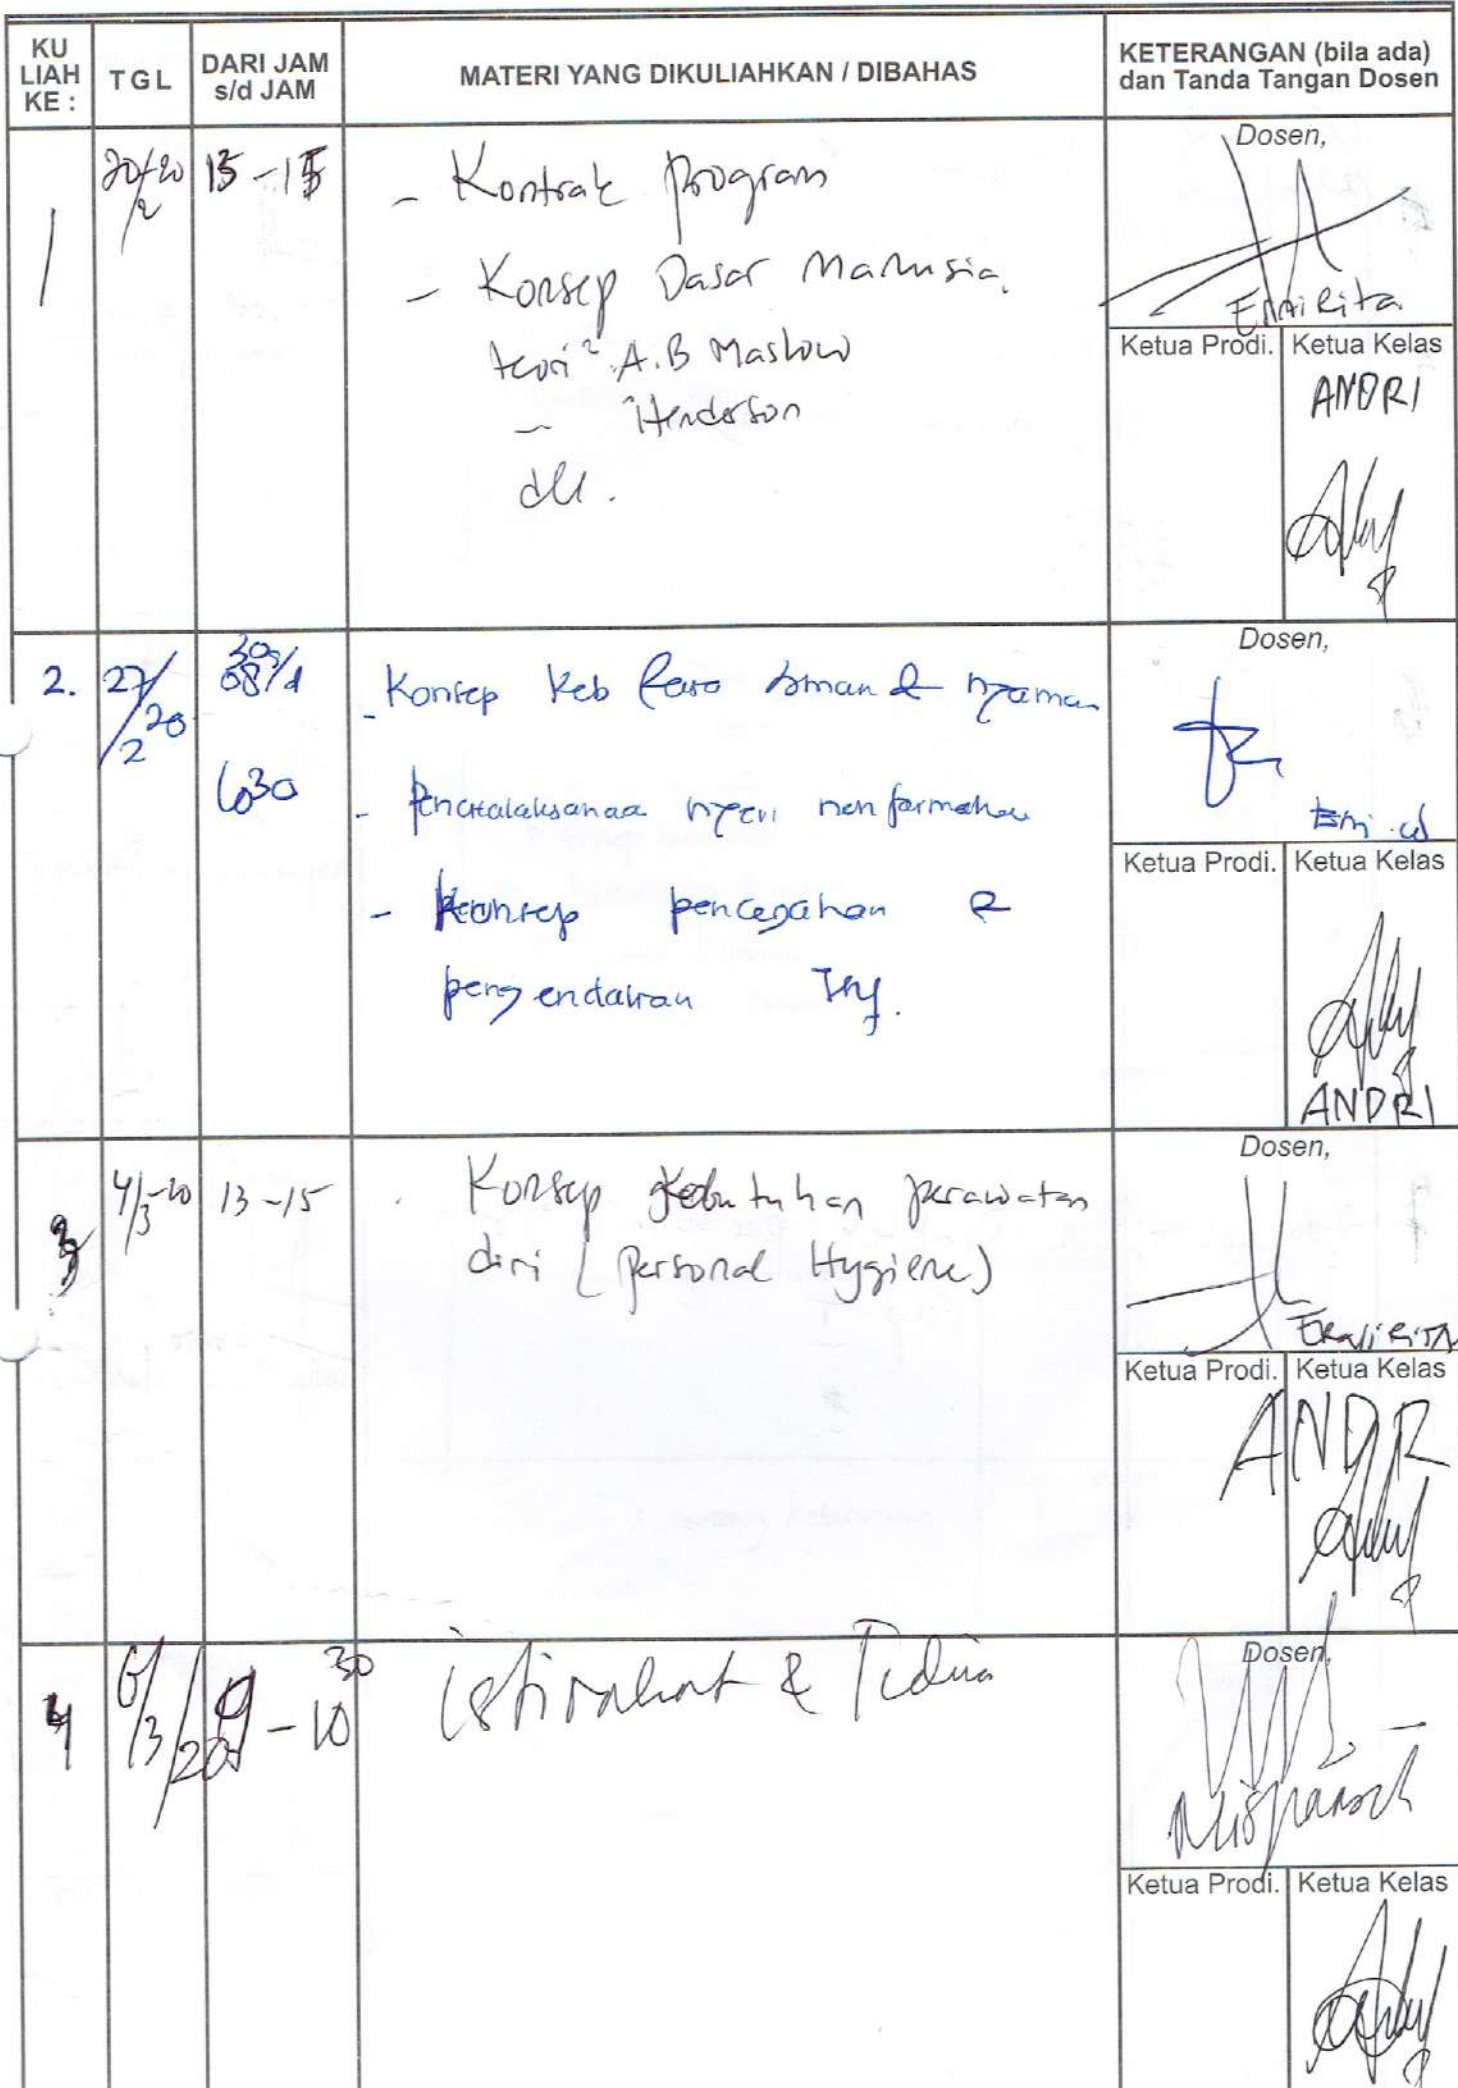 KU LIAH KE :
TGL
DARI JAM s/d JAM
MATERI YANG DIKULIAHKAN / DIBAHAS
KETERANGAN (bila ada) dan Tanda Tangan Dosen
1
20/2-20
13 - 15
- Kontrak program
- Konsep Dasar Manusia.
teori² A.B Maslow
- Henderson
dll.
Dosen,
Ernirita
Ketua Prodi.
Ketua Kelas
ANDRI
2.
27/2 20
08 30 s/d
1030
- Konsep Keb Rasa Aman & nyaman
- Penatalaksanaa nyeri non farmakol
- Konsep pencegahan &
pengendalian Inf.
Dosen,
Ketua Prodi.
Ketua Kelas
ANDRI
3
4/3-20
13 - 15
Konsep Kebutuhan perawatan
diri (Personal Hygiene)
Dosen,
ERNIRITA
Ketua Prodi.
Ketua Kelas
ANDR
4
6/3/20
9 - 10 30
istirahat & Tidur
Dosen,
Ketua Prodi.
Ketua Kelas